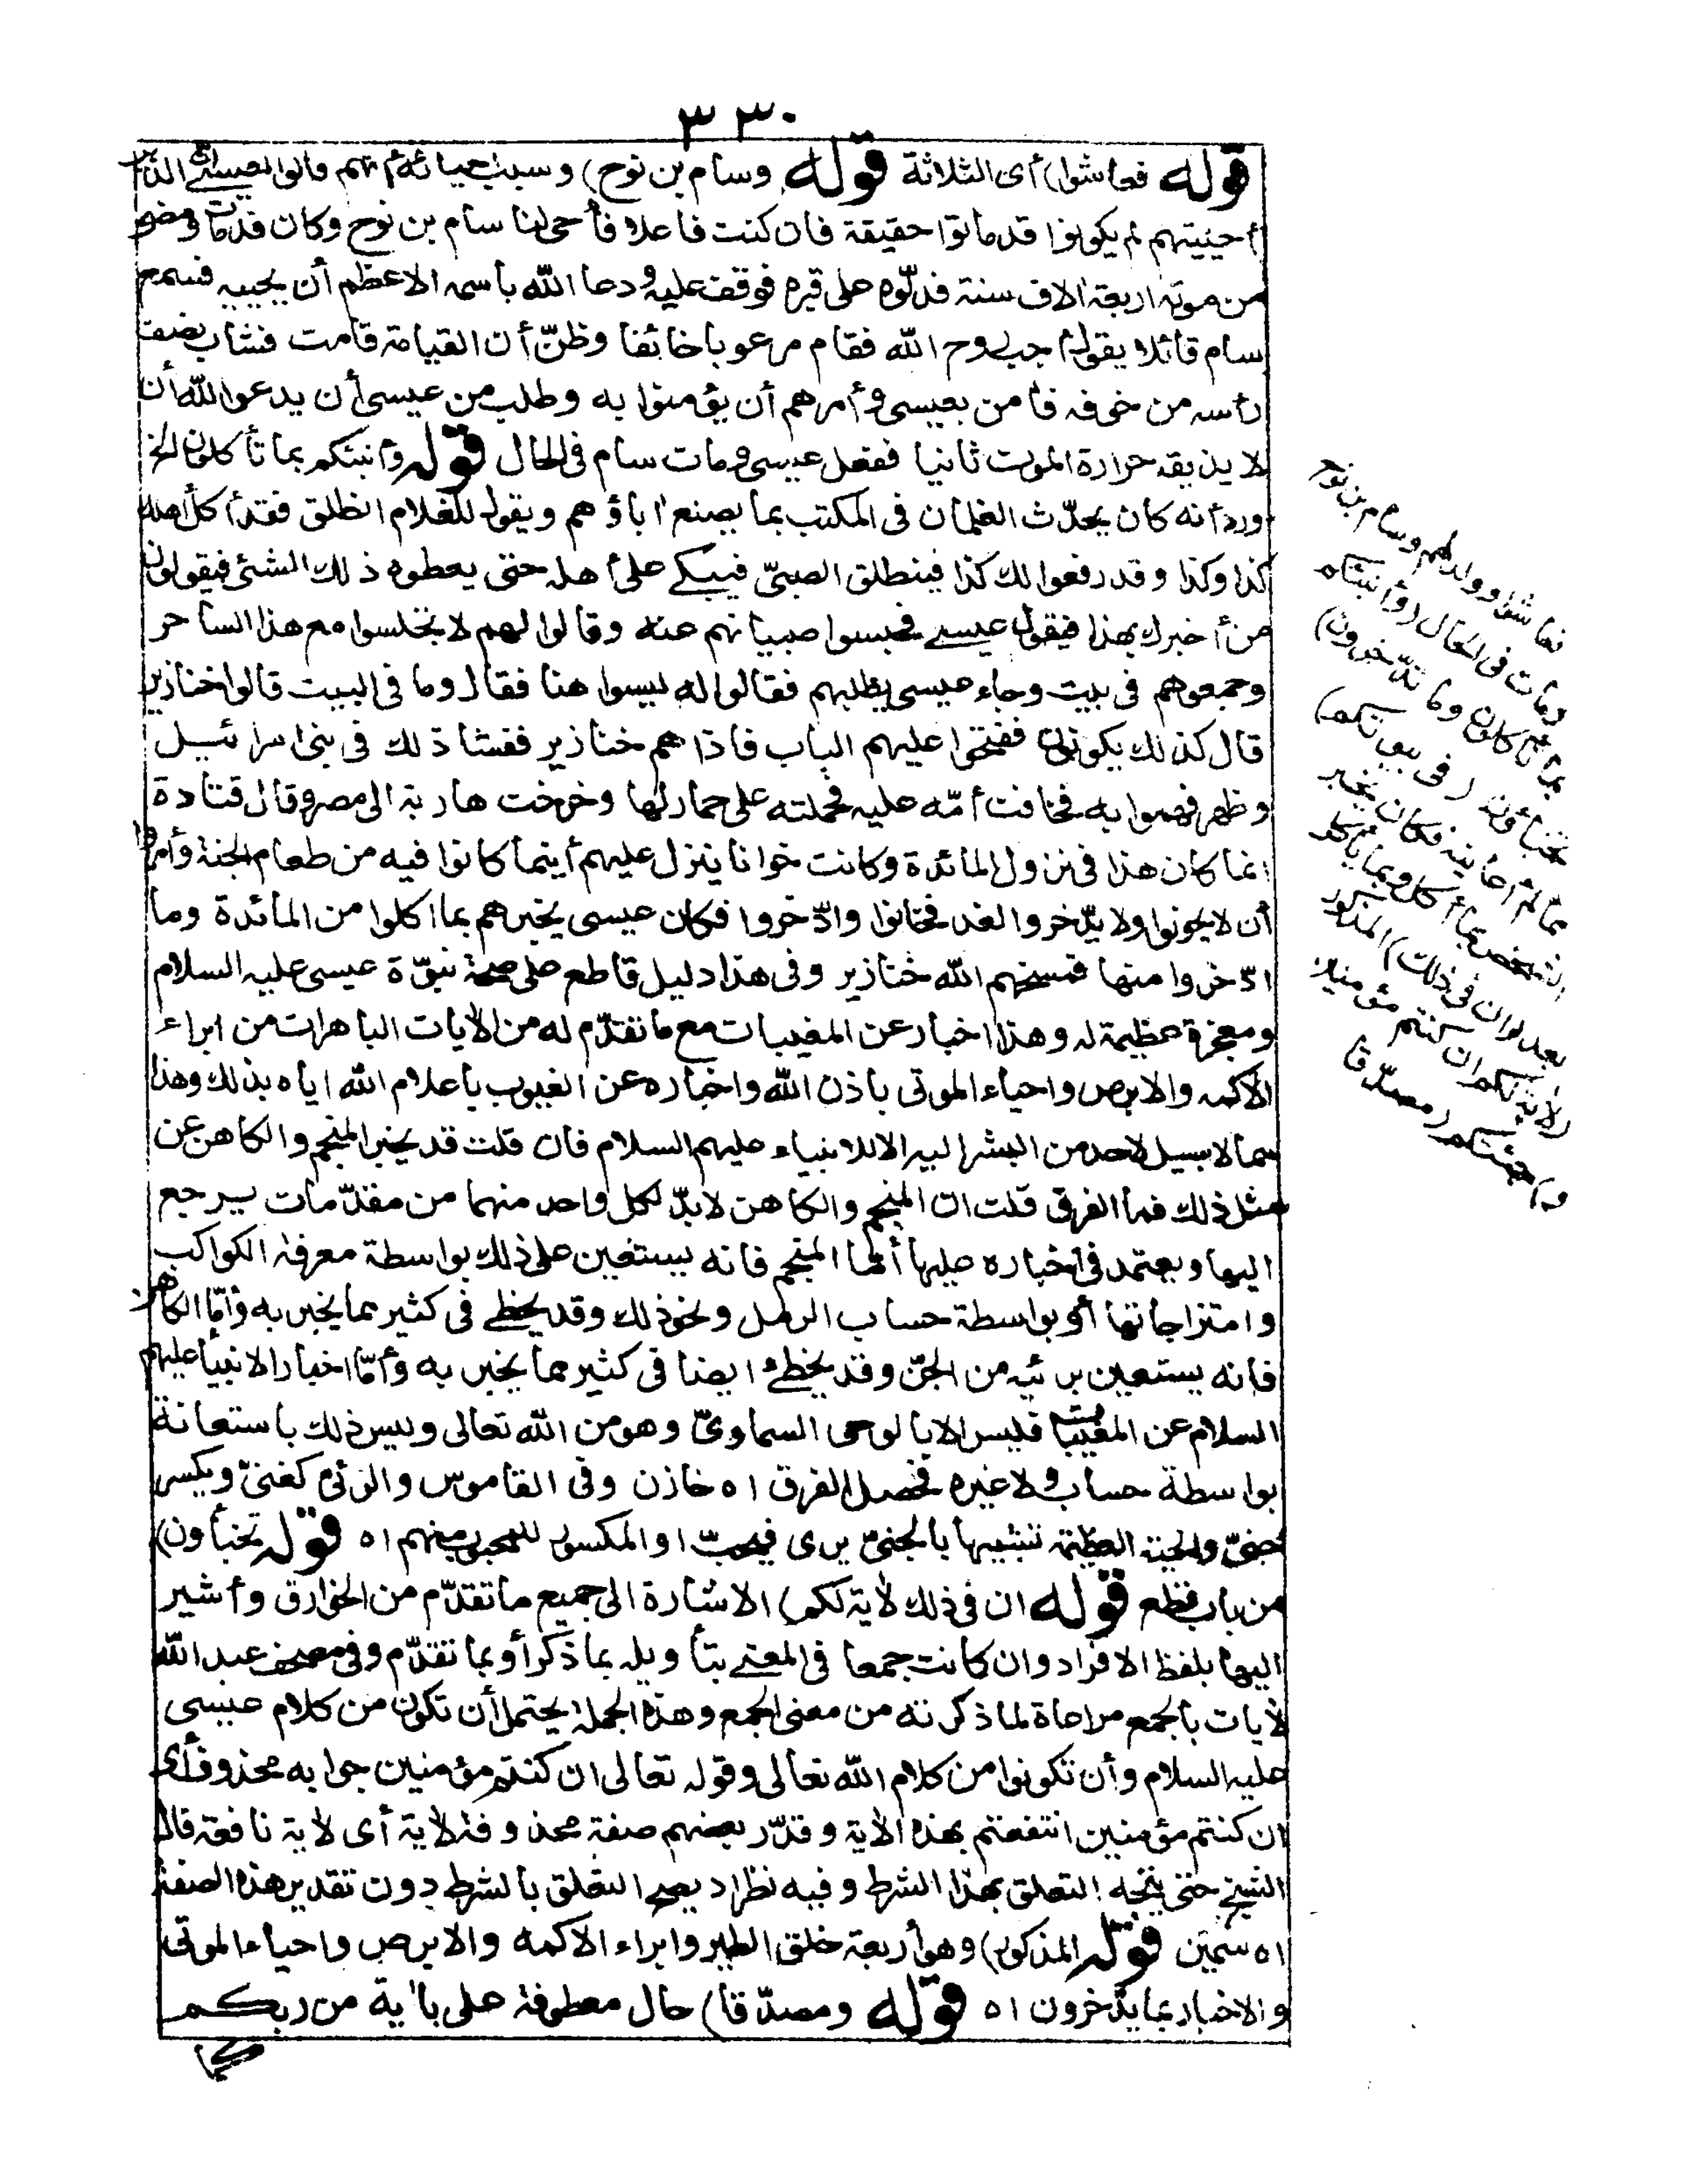 ٣٣٠
قوله فعاشوا) أى الثلاثة قوله وسام بن نوح) وسبب احيائه أنهم قالوا لعيسى ان الذين
أحييتهم لم يكونوا قد ماتوا حقيقة فان كنت فاعلا فأحى لنا سام بن نوح وكان قد مات ومضى
من موته اربعة الاف سنة فدلّوه على قبره فوقف عليه ودعا الله باسمه الاعظم أن يجيبه فسمع
سام قائلا يقول أجب روح الله فقام مرعوبا خائفا وظنّ أن القيامة قامت فشاب نصف
رأسه من خوفه فامن بعيسى وأمرهم أن يؤمنوا به وطلب من عيسى أن يدعو الله أن
لا يذيقه حرارة الموت ثانيا ففعل عيسى ومات سام فى الحال قوله وأنبئكم بما تأكلون الخ
ورد أنه كان يحدّث الغلمان فى المكتب بما يصنع اباؤهم ويقول للغلام انطلق فقد أكل أهلك
كذا وكذا وقد رفعوا لك كذا فينطلق الصبىّ فيبكى على أهله حتى يعطوه ذلك الشئ فيقولون
من أخبرك بهذا فيقول عيسى فحبسوا صبيانهم عنه وقالوا لهم لا تجلسوا مع هذا الساحر
وجمعوهم فى بيت وجاء عيسى يطلبهم فقالوا له ليسوا هنا فقال وما فى البيت قالوا خنازير
قال كذلك يكونون ففتحوا عليهم الباب فاذا هم خنازير ففشا ذلك فى بنى اسرائيل
وظهر فهموا به فخافت أمّه عليه فحملته على حمار لها وخرجت هاربة الى مصر وقال قتادة
انما كان هذا فى نزول المائدة وكانت خوانا ينزل عليهم أينما كانوا فيه من طعام الجنة وأمروا
أن لا يخونوا ولا يدّخروا لغد فخانوا وادّخروا فكان عيسى يخبرهم بما اكلوا من المائدة وما
ادّخروا منها فمسخهم الله خنازير وفى هذا دليل قاطع على صحة نبوّة عيسى عليه السلام
ومعجزة عظيمة له وهذا اخبار عن المغيبات مع ما تقدّم له من الآيات الباهرات من ابراء
الاكمه والابرص واحياء الموتى باذن الله واخباره عن الغيوب باعلام الله اياه بذلك وهذا
مما لا سبيل لاحد من البشر اليه الا للانبياء عليهم السلام فان قلت قد يخبر المنجم والكاهن عن
مثل ذلك فما الفرق قلت ان المنجم والكاهن لا بدّ لكل واحد منهما من مقدّمات يرجع
اليها ويعتمد فى اخباره عليها أما المنجم فانه يستعين على ذلك بواسطة معرفة الكواكب
وامتزاجاتها أو بواسطة حساب الرمل ونحو ذلك وقد يخطئ فى كثير مما يخبر به وأمّا الكاهن
فانه يستعين برئيه من الجنّ وقد يخطئ ايضا فى كثير مما يخبر به وأمّا اخبار الانبياء عليهم
السلام عن المغيبات فليس الا بالوحى السماوىّ وهو من الله تعالى وليس ذلك باستعانة
بواسطة حساب ولا غيره فحصل الفرق اه خازن وفى القاموس والرئى كغنىّ ويكسر
جنىّ والحية العظيمة تشبيها بالجنىّ يرى فيحبّ او المكسور للمحبوب منهم اه قوله تخبأون)
من باب قطع قوله ان فى ذلك لآية لكم) الاشارة الى جميع ما تقدّم من الخوارق وأشير
اليها بلفظ الافراد وان كانت جمعا فى المعنى بتأويله بما ذكر أو بما تقدّم وفى مصحف عبد الله
لآيات بالجمع مراعاة لما ذكرته من معنى الجمع وهذه الجملة يحتمل أن تكون من كلام عيسى
عليه السلام وأن تكونوا من كلام الله تعالى وقوله تعالى ان كنتم مؤمنين جوابه محذوف أى
ان كنتم مؤمنين انتفعتم بهذه الآية وقدّر بعضهم صفة محذوفة لآية أى لآية نافعة قال
الشيخ حتى يتجه التعلق بهذا الشرط وفيه نظر اذ يصح التعلق بالشرط دون تقدير هذه الصفة
اه سمين قوله المذكور) وهو أربعة خلق الطير وابراء الاكمه والابرص واحياء الموتى
والاخبار بما يدّخرون اه قوله ومصدّقا) حال معطوفة على بآية من ربكم
كما
فعاشوا وولد لهم وسام بن نوح
ومات فى الحال (وأنبئكم
بما تأكلون وما تدّخرون)
تخبأون (فى بيوتكم)
مما لم أعاينه فكان يخبر
الشخص بما أكل وبما يأكل
بعد (ان فى ذلك) المذكور
(لآية لكم ان كنتم مؤمنين
و) جئتكم (مصدّقا